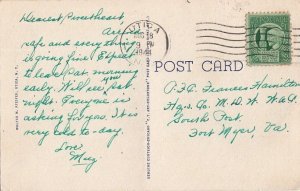 Dearest Sweetheart,
Arrived
safe and everything
is going fine. Expect
to leave Pat. morning
early. Will see
night. Everyone is
asking for you. It is
very cold to-day.
Love
UTICA
DEC 28
9 PM
POST CARD
P.F.C. Frances Hamilton
Hq. Co. M.D.W. WAC
South Post
Fort Myer, Va.